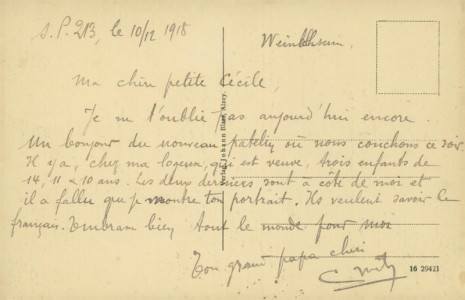 S.P. 213, le 10/12 1918
Weinolsheim,
Ma chère petite Cécile,
Je ne t'oublie pas aujourd'hui encore.
Un bonjour du nouveau patelin où nous couchons ce soir.
Il y a, chez ma logeuse, qui est veuve, trois enfants de
14, 11 et 10 ans. Les deux derniers sont à côté de moi et
il a fallu que je montre ton portrait. Ils veulent savoir le
français. Embrasse bien tout le monde pour moi
Ton grand papa chéri
Verlag Johann Blass, Alzey.
16 29421